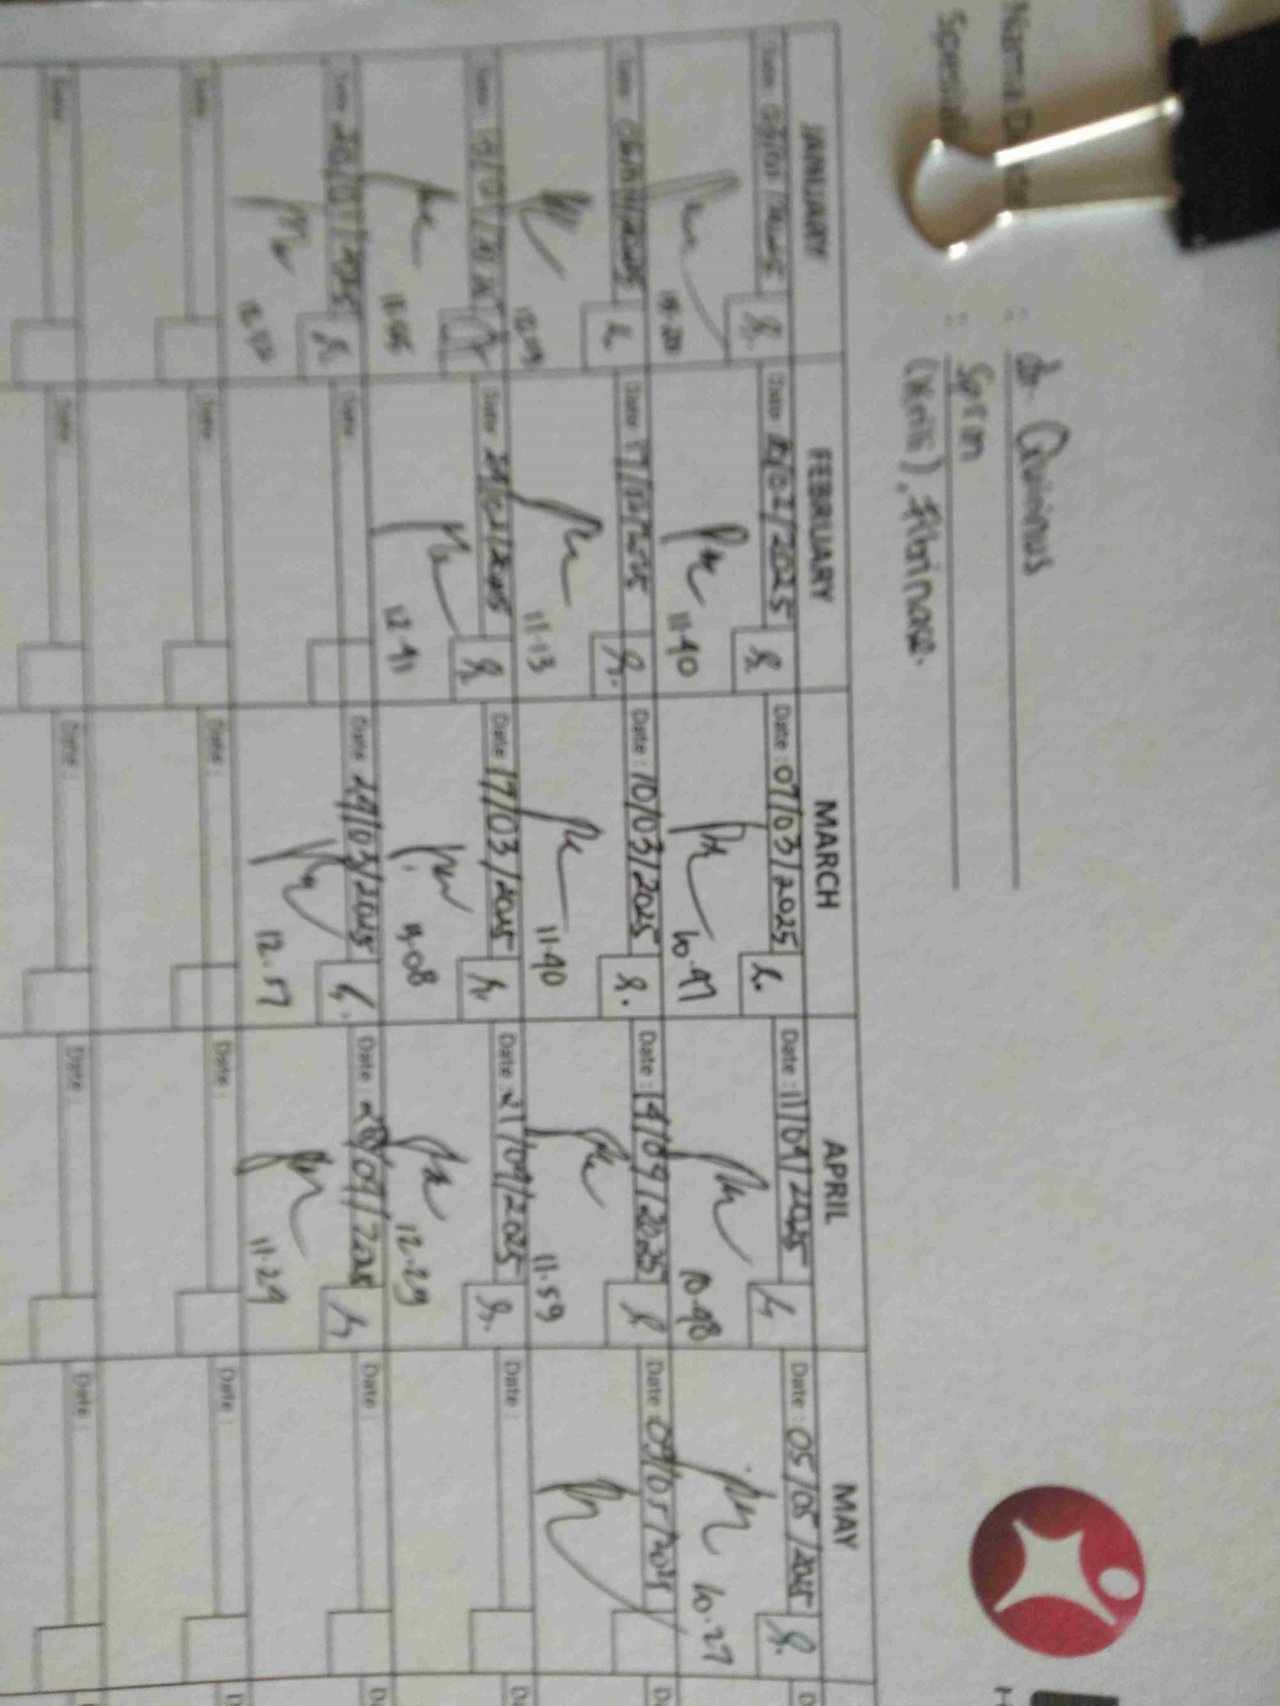 Nama D
: dr. Quirinus
Spesial
: Sprm
(Xeriti), Fibrinase.
JANUARY FEBRUARY MARCH APRIL MAY
Date: 03/01/2025 Date: 10/02/2025 Date: 07/03/2025 Date: 11/04/2025 Date: 05/05/2025
11.40 10.47 10.48 10.27
Date: 06/01/2025 Date: 17/02/2025 Date: 10/03/2025 Date: 14/04/2025 Date: 09/05/2025
12.19 11.13 11.40 11.59
Date: 13/01/2025 Date: 24/02/2025 Date: 17/03/2025 Date: 21/04/2025 Date:
12.41 11.08 12.29
Date: 20/01/2025 Date: Date: 24/03/2025 Date: 28/04/2025 Date:
12.57 11.29
Date: Date: Date: Date: Date:
Date: Date: Date: Date: Date: